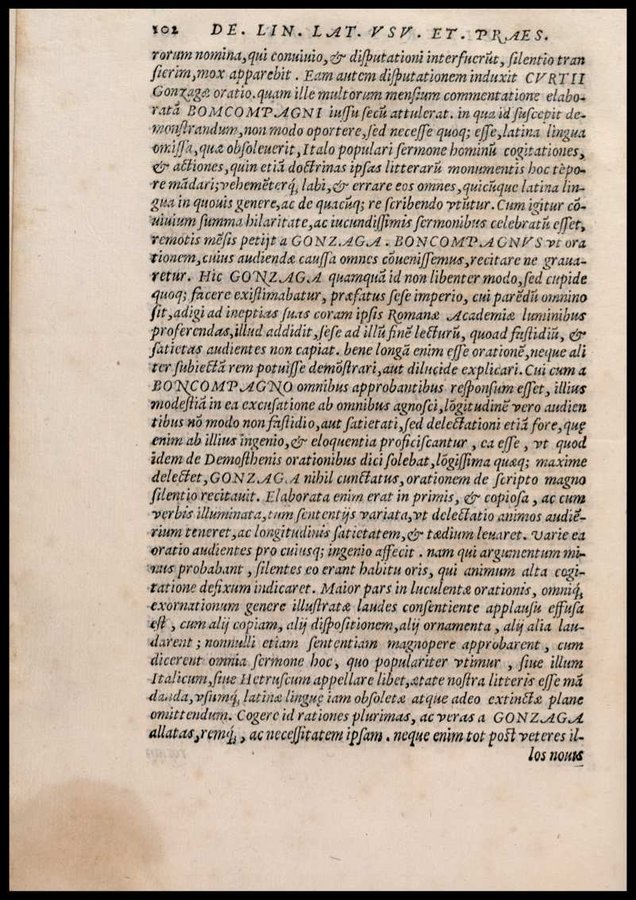 102 DE. LIN. LAT. VSV. ET. PRAES.
rorum nomina, qui conuiuio, & disputationi interfuerũt, silentio tran
sierim, mox apparebit. Eam autem disputationem induxit CVRTII
Gonzagæ oratio. quam ille multorum mensium commentatione elabo-
ratã BOMCOMPAGNI iussu secũ attulerat. in qua id suscepit de-
monstrandum, non modo oportere, sed necesse quoq; esse, latina lingua
omissa, quæ obsoleuerit, Italo populari sermone hominũ cogitationes,
& actiones, quin etiã doctrinas ipsas litterarũ monumentis hoc tẽpo-
re mãdari; vehemẽterq́; labi, & errare eos omnes, quicũque latina lin-
gua in quouis genere, ac de quacũq; re scribendo vtũtur. Cum igitur cõ-
uiuium summa hilaritate, ac iucundissimis sermonibus celebratũ esset,
remotis mẽsis petijt a GONZAGA. BONCOMPAGNVS vt ora
tionem, cuius audiendæ caussa omnes cõuenissemus, recitare ne graua-
retur. Hic GONZAGA quamquã id non libenter modo, sed cupide
quoq; facere existimabatur, præfatus sese imperio, cui parẽdũ omnino
sit, adigi ad ineptias suas coram ipsis Romanæ Academiæ luminibus
proferendas, illud addidit, sese ad illũ finẽ lecturũ, quoad fastidiũ, &
satietas audientes non capiat. bene longã enim esse orationẽ, neque ali
ter subiectã rem potuisse demõstrari, aut dilucide explicari. Cui cum a
BONCOMPAGNO omnibus approbantibus responsum esset, illius
modestiã in ea excusatione ab omnibus agnosci, lõgitudinẽ vero audien
tibus nõ modo non fastidio, aut satietati, sed delectationi etiã fore, quę
enim ab illius ingenio, & eloquentia proficiscantur, ea esse, vt quod
idem de Demosthenis orationibus dici solebat, lõgissima quæq; maxime
delectet, GONZAGA nihil cunctatus, orationem de scripto magno
silentio recitauit. Elaborata enim erat in primis, & copiosa, ac cum
verbis illuminata, tum sententijs variata, vt delectatio animos audiẽ-
rium teneret, ac longitudinis satietatem, & tædium leuaret. Varie ea
oratio audientes pro cuiusq; ingenio affecit. nam qui argumentum mi-
nus probabant, silentes eo erant habitu oris, qui animum alta cogi-
tatione defixum indicaret. Maior pars in luculentæ orationis, omniq́;
exornationum genere illustratæ laudes consentiente applausu effusa
est, cum alij copiam, alij dispositionem, alij ornamenta, alij alia lau-
darent; nonnulli etiam sententiam magnopere approbarent, cum
dicerent omnia sermone hoc, quo populariter vtimur, siue illum
Italicum, siue Hetruscum appellare libet, ætate nostra litteris esse mã
danda, vsumq́; latinæ linguę iam obsoletæ atque adeo extinctæ plane
omittendum. Cogere id rationes plurimas, ac veras a GONZAGA
allatas, remq́;, ac necessitatem ipsam. neque enim tot post veteres il-
los nouis